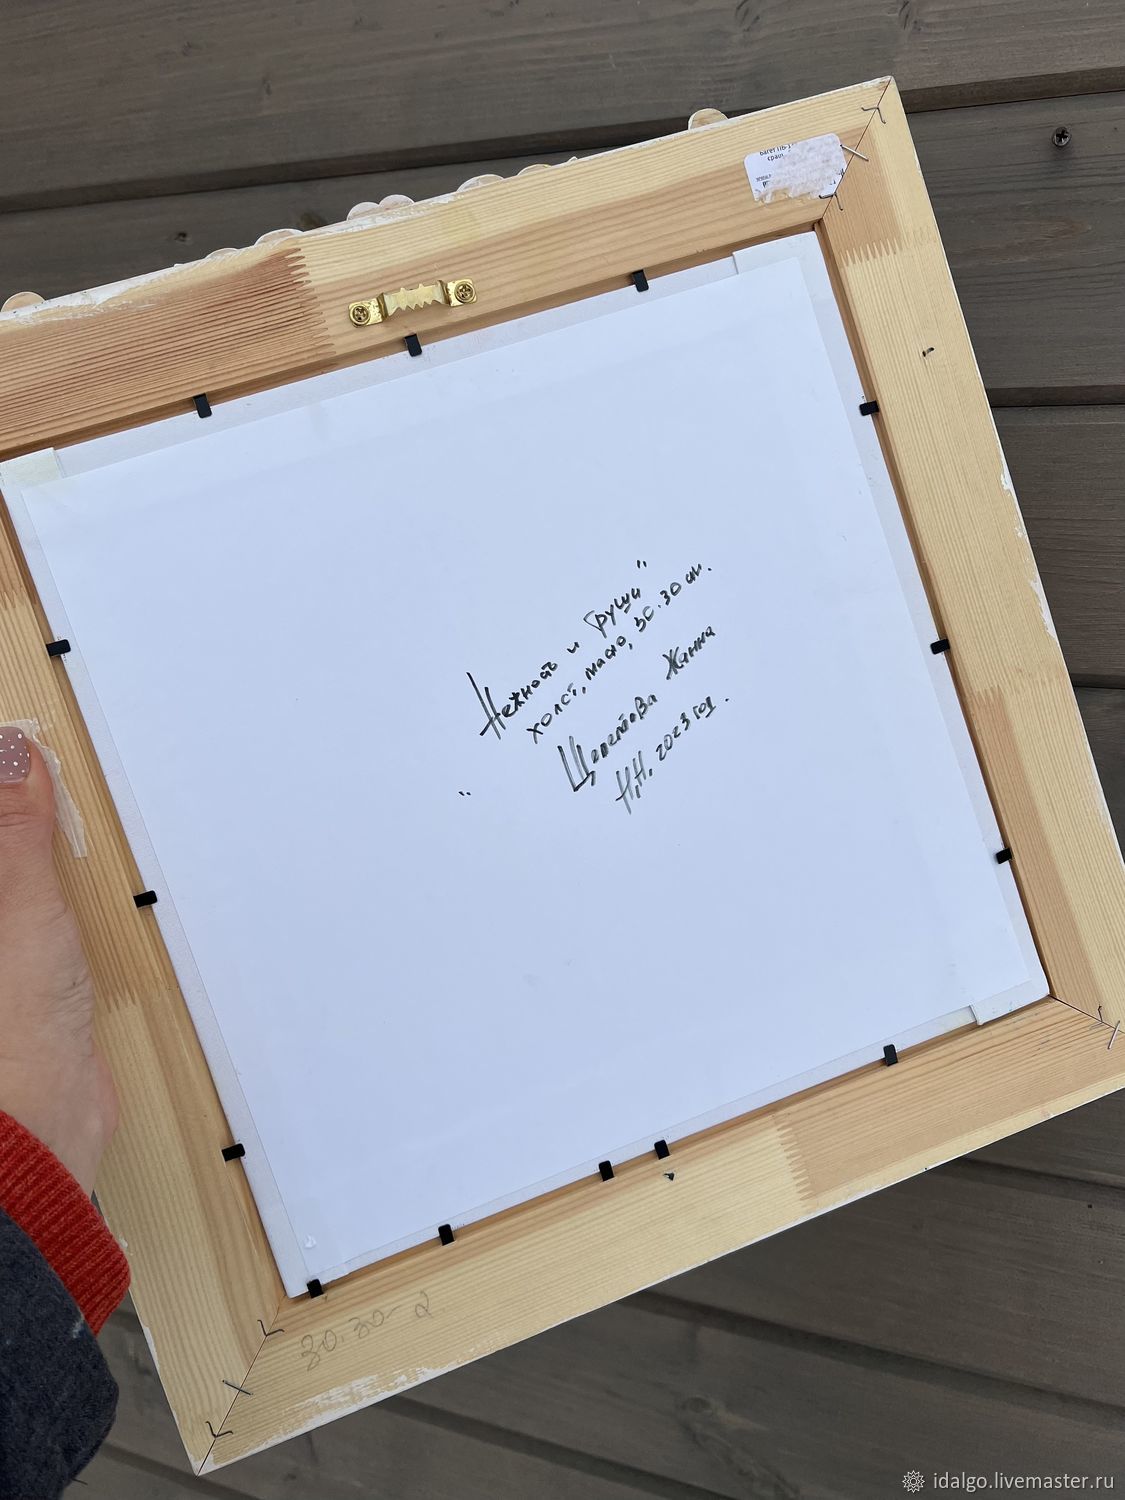 Багет ПБ-1
"Нежность и Груши"
холст, масло, 30.30 см.
Щепетова Жанна
Н.Н. 2023 год.
30.30-2
idalgo.livemaster.ru